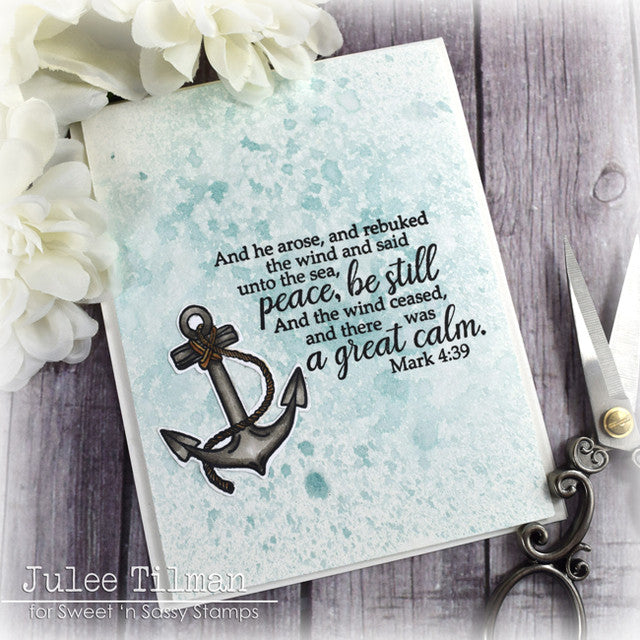 And he arose, and rebuked
the wind and said
unto the sea,
peace, be still
And the wind ceased,
and there was
a great calm.
Mark 4:39
Julee Tilman
for Sweet 'n Sassy Stamps